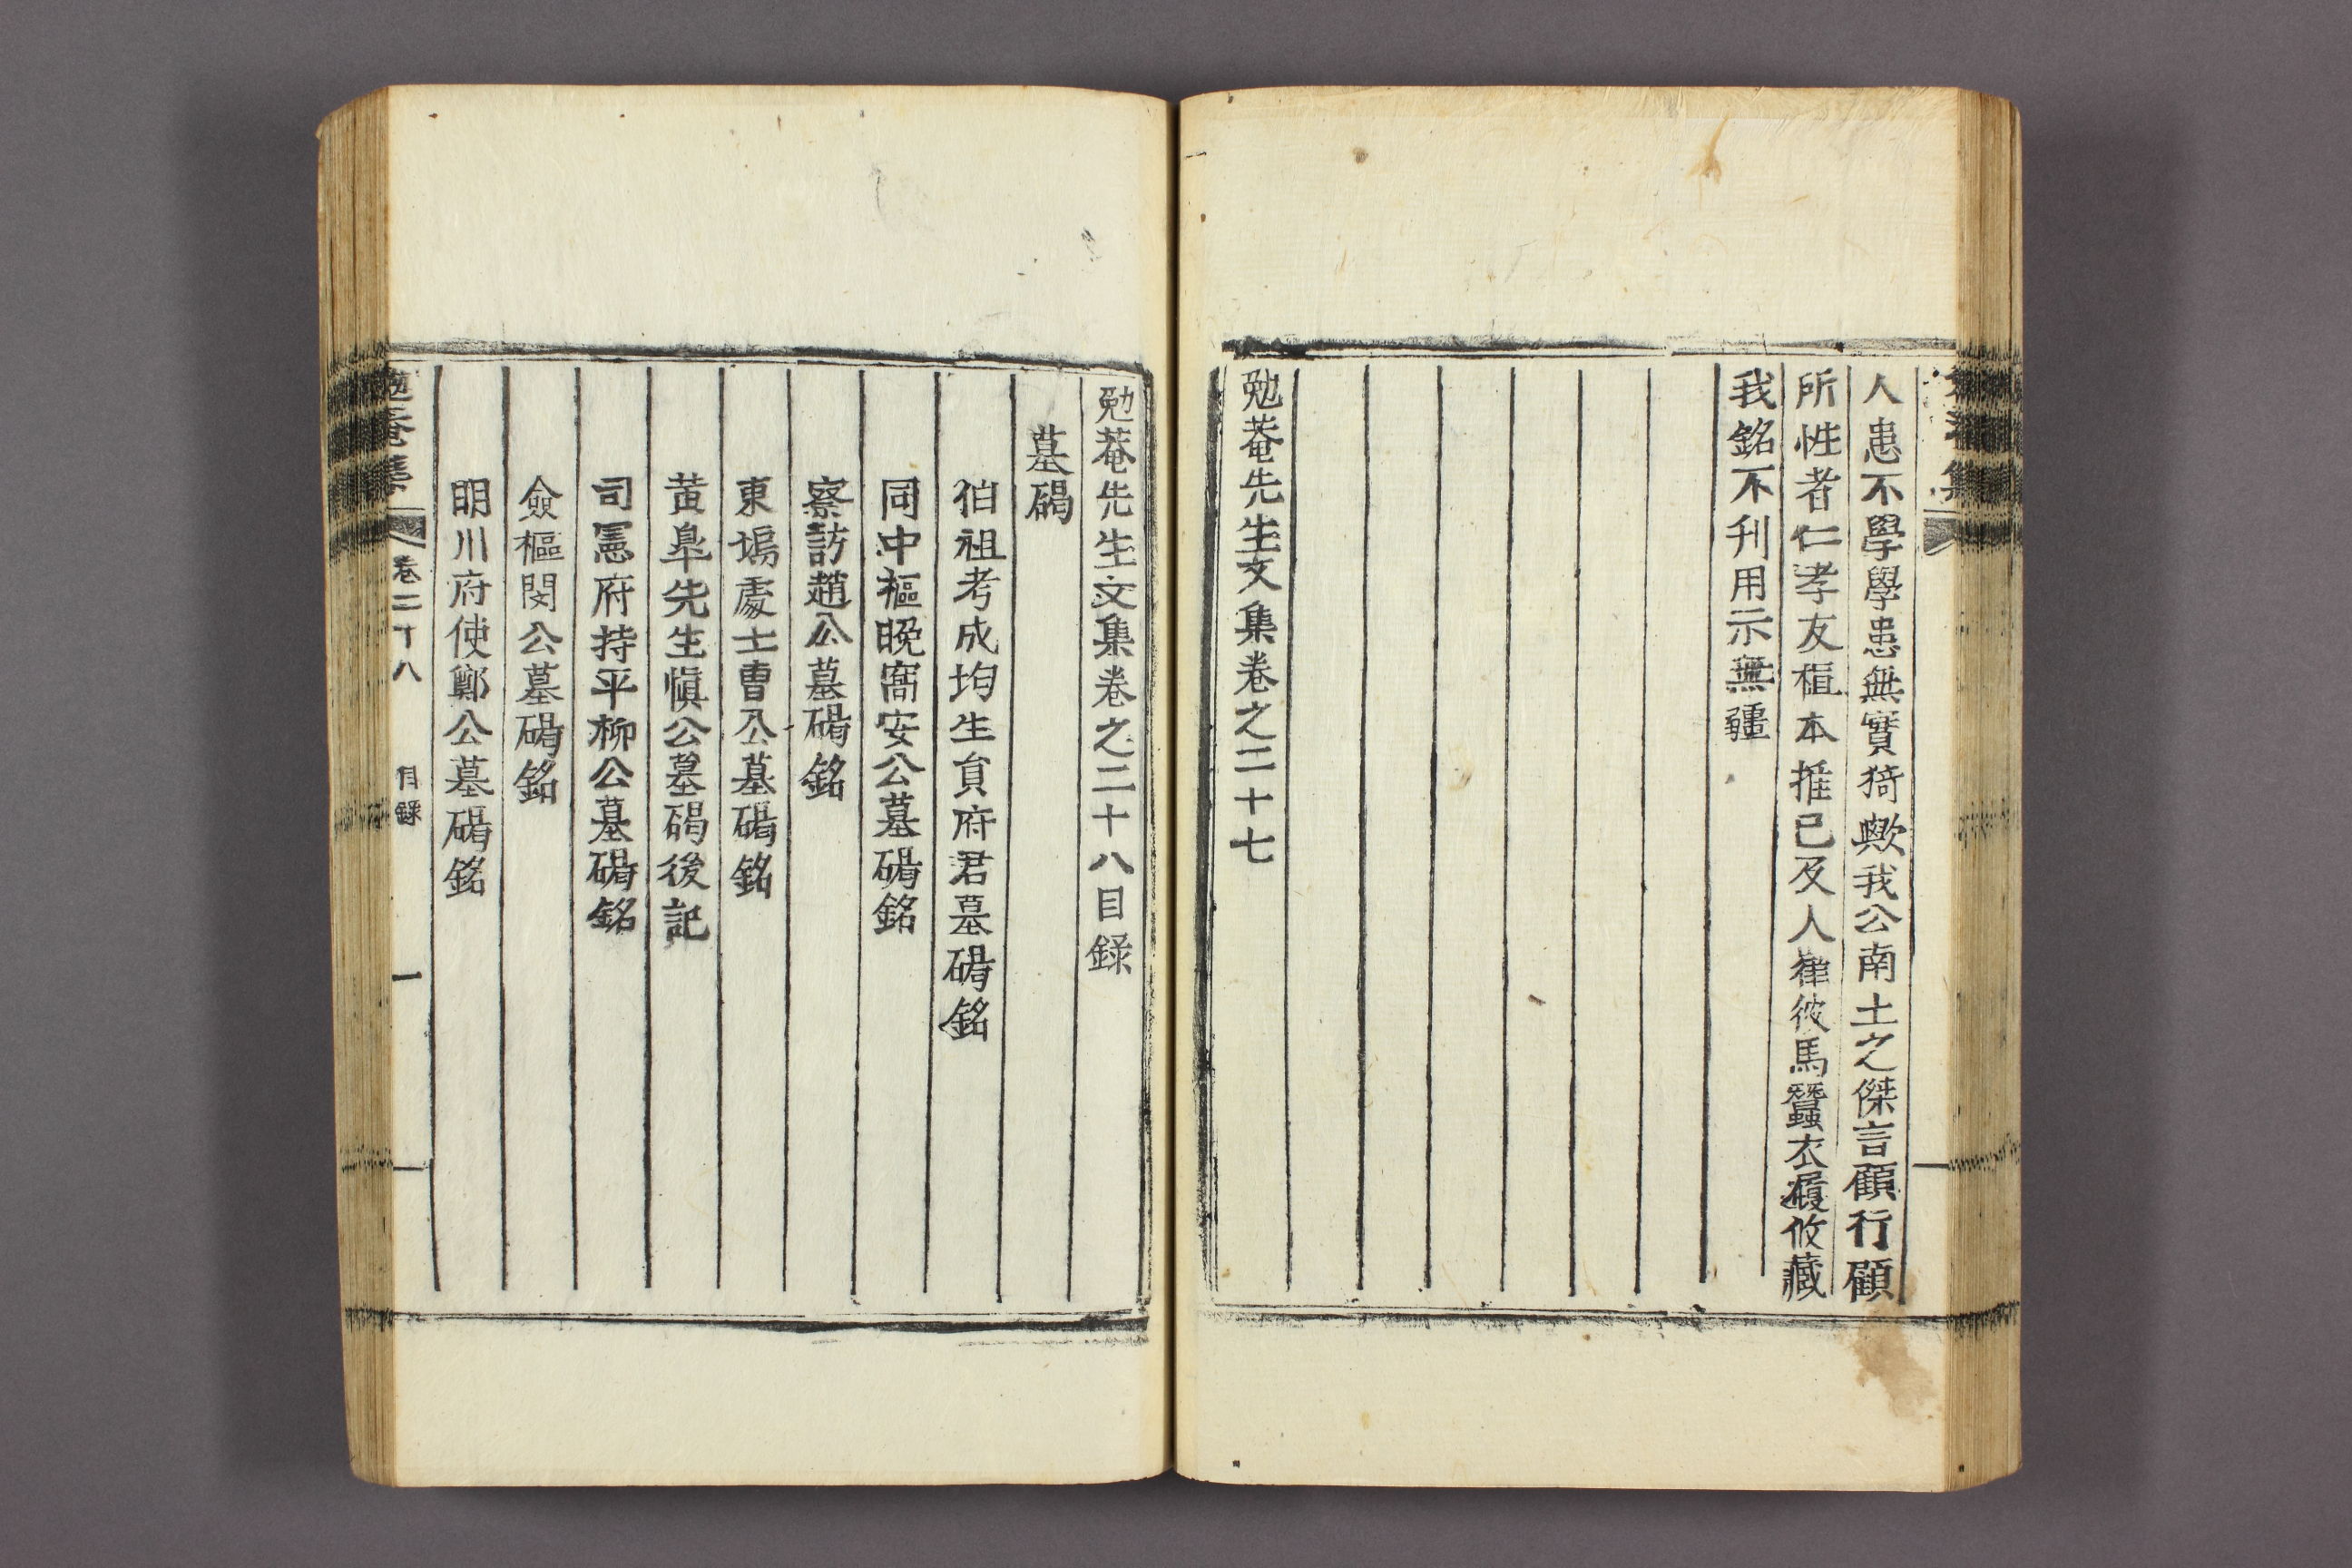 人患不學學患無實猗歟我公南土之傑言顧行顧
所性者仁孝友植本推己及人律彼馬蠶衣履攸藏
我銘不刊用示無疆
勉菴先生文集卷之二十七
勉菴先生文集卷之二十八目錄
墓碣
伯祖考成均生員府君墓碣銘
同中樞晚窩安公墓碣銘
察訪趙公墓碣銘
東塢處士曹公墓碣銘
黃皐先生愼公墓碣後記
司憲府持平柳公墓碣銘
僉樞閔公墓碣銘
明川府使鄭公墓碣銘
勉菴集 卷二十八 目錄 一